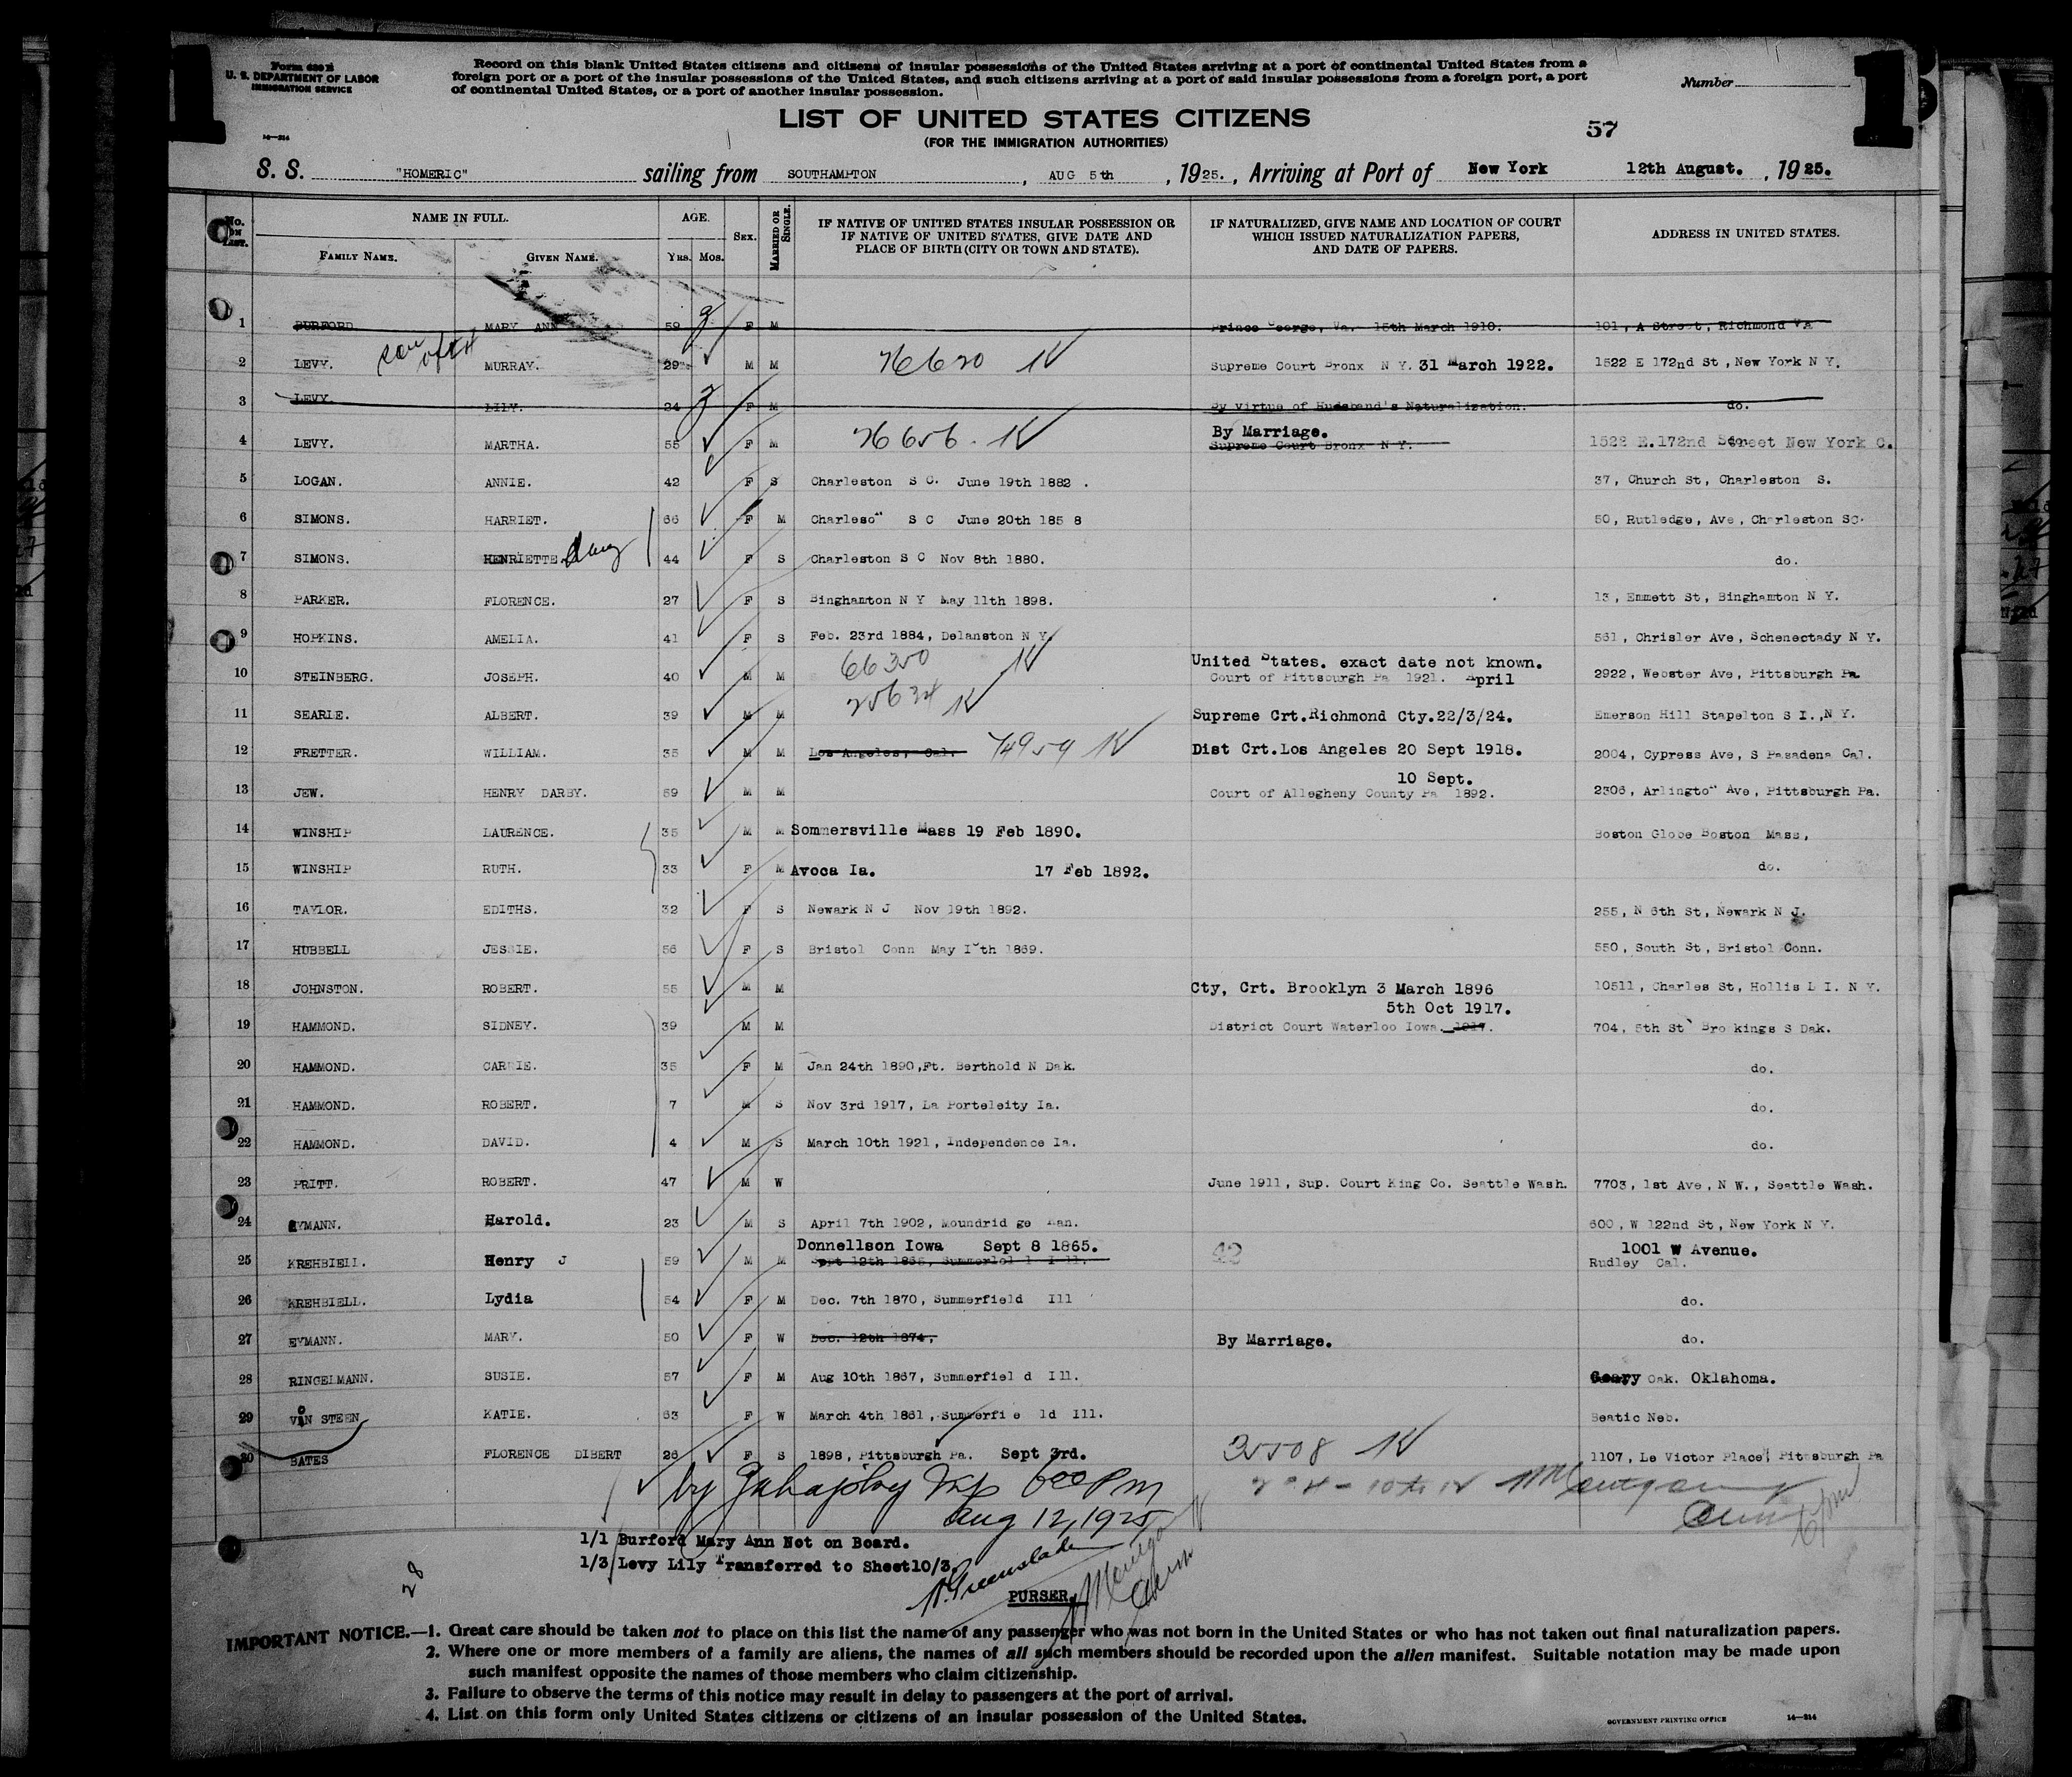 Form 630 B
U. S. DEPARTMENT OF LABOR
IMMIGRATION SERVICE
14—214
Record on this blank United States citizens and citizens of insular possessions of the United States arriving at a port of continental United States from a
foreign port or a port of the insular possessions of the United States, and such citizens arriving at a port of said insular possessions from a foreign port, a port
of continental United States, or a port of another insular possession.
Number
1
LIST OF UNITED STATES CITIZENS
(FOR THE IMMIGRATION AUTHORITIES)
57
S. S. "HOMERIC" sailing from SOUTHAMPTON, AUG 5th, 1925., Arriving at Port of New York 12th August., 1925.
No. ON LIST. NAME IN FULL. AGE. SEX. MARRIED OR SINGLE. IF NATIVE OF UNITED STATES INSULAR POSSESSION OR IF NATIVE OF UNITED STATES, GIVE DATE AND PLACE OF BIRTH (CITY OR TOWN AND STATE). IF NATURALIZED, GIVE NAME AND LOCATION OF COURT WHICH ISSUED NATURALIZATION PAPERS, AND DATE OF PAPERS. ADDRESS IN UNITED STATES.
FAMILY NAME. GIVEN NAME. Yrs. Mos.
1 BURFORD MARY ANN 59 F M Prince George, Va. 15th March 1910. 101, A Street, Richmond Va
2 LEVY. son of #4 MURRAY. 29 M M 76620 Supreme Court Bronx N Y. 31 March 1922. 1522 E 172nd St, New York N Y.
3 LEVY. LILY. 24 F M By virtue of Husband's Naturalization. do.
4 LEVY. MARTHA. 55 F M 76656 By Marriage. Supreme Court Bronx N Y. 1522 E.172nd Street New York C.
5 LOGAN. ANNIE. 42 F S Charleston S C. June 19th 1882 . 37, Church St, Charleston S.
6 SIMONS. HARRIET. 66 F M Charleso" S C June 20th 185 8 50, Rutledge, Ave, Charleston SC.
7 SIMONS. HENRIETTE. daug 44 F S Charleston S C Nov 8th 1880. do.
8 PARKER. FLORENCE. 27 F S Binghamton N Y May 11th 1898. 13, Emmett St, Binghamton N Y.
9 HOPKINS. AMELIA. 41 F S Feb. 23rd 1884, Delanston N Y. 561, Chrisler Ave, Schenectady N Y.
10 STEINBERG. JOSEPH. 40 M M 66350 United States. exact date not known. Court of Pittsburgh Pa 1921. April 2922, Webster Ave, Pittsburgh Pa
11 SEARLE. ALBERT. 39 M M 25634 Supreme Crt.Richmond Cty.22/3/24. Emerson Hill Stapelton S I.,N Y.
12 FRETTER. WILLIAM. 35 M M Los Angeles, Cal. 74959 Dist Crt.Los Angeles 20 Sept 1918. 2004, Cypress Ave, S Pasadena Cal.
13 JEW. HENRY DARBY. 59 M M 10 Sept. Court of Allegheny County Pa 1892. 2306, Arlingto" Ave, Pittsburgh Pa.
14 WINSHIP LAURENCE. 35 M M Sommersville Mass 19 Feb 1890. Boston Globe Boston Mass,
15 WINSHIP RUTH. 33 F M Avoca Ia. 17 Feb 1892. do.
16 TAYLOR. EDITHS. 32 F S Newark N J Nov 19th 1892. 255, N 6th St, Newark N J.
17 HUBBELL JESSIE. 56 F S Bristol Conn May 1 th 1869. 550, South St, Bristol Conn.
18 JOHNSTON. ROBERT. 55 M M Cty, Crt. Brooklyn 3 March 1896 10511, Charles St, Hollis L I. N Y.
19 HAMMOND. SIDNEY. 39 M M 5th Oct 1917. District Court Waterloo Iowa. 1917. 704, 5th St Bro kings S Dak.
20 HAMMOND. CARRIE. 35 F M Jan 24th 1890,Ft. Berthold N Dak. do.
21 HAMMOND. ROBERT. 7 M S Nov 3rd 1917, La Porteleity Ia. do.
22 HAMMOND. DAVID. 4 M S March 10th 1921, Independence Ia. do.
23 PRITT. ROBERT. 47 M W June 1911, Sup. Court King Co. Seattle Wash. 7703, 1st Ave, N W., Seattle Wash.
24 EYMANN. Harold. 23 M S April 7th 1902, Moundrid ge Kan. 600, W 122nd St, New York N Y.
25 KREHBIELL. Henry J 59 M M Donnellson Iowa Sept 8 1865. Sept 12th 1865, Summerlol l Ill. 42 1001 W Avenue. Rudley Cal.
26 KREHBIELL. Lydia 54 F M Dec. 7th 1870, Summerfield Ill do.
27 EYMANN. MARY. 50 F W Dec. 12th 1874, By Marriage. do.
28 RINGELMANN. SUSIE. 57 F M Aug 10th 1867, Summerfiel d Ill. Geary Oak. Oklahoma.
29 VON STEEN KATIE. 63 F W March 4th 1861, Summerfie ld Ill. Beatic Neb.
30 BATES FLORENCE DIBERT 26 F S 1898, Pittsburgh Pa. Sept 3rd. 35508 1107, Le Victor Place, Pittsburgh Pa
by Insp 6 00 PM
Aug 12, 1925
1/1 Burford Mary Ann Not on Board.
1/3 Levy Lily Transferred to Sheet10/3.
28
PURSER.
IMPORTANT NOTICE.—1. Great care should be taken not to place on this list the name of any passenger who was not born in the United States or who has not taken out final naturalization papers.
2. Where one or more members of a family are aliens, the names of all such members should be recorded upon the alien manifest. Suitable notation may be made upon
such manifest opposite the names of those members who claim citizenship.
3. Failure to observe the terms of this notice may result in delay to passengers at the port of arrival.
4. List on this form only United States citizens or citizens of an insular possession of the United States.
GOVERNMENT PRINTING OFFICE 14—214